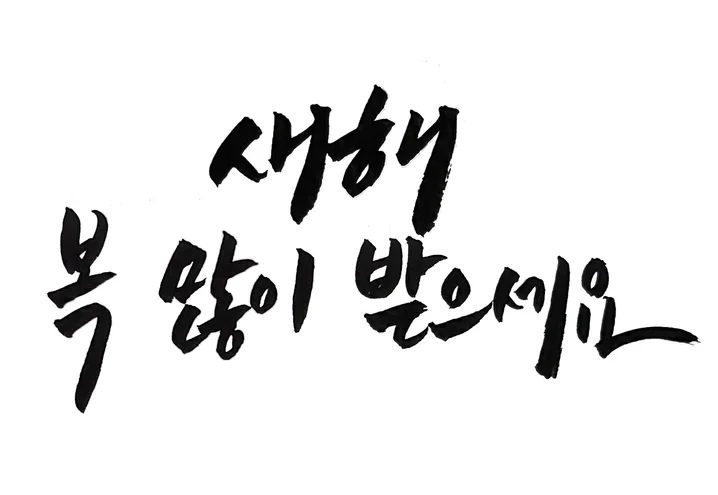 새해
복 많이 받으세요